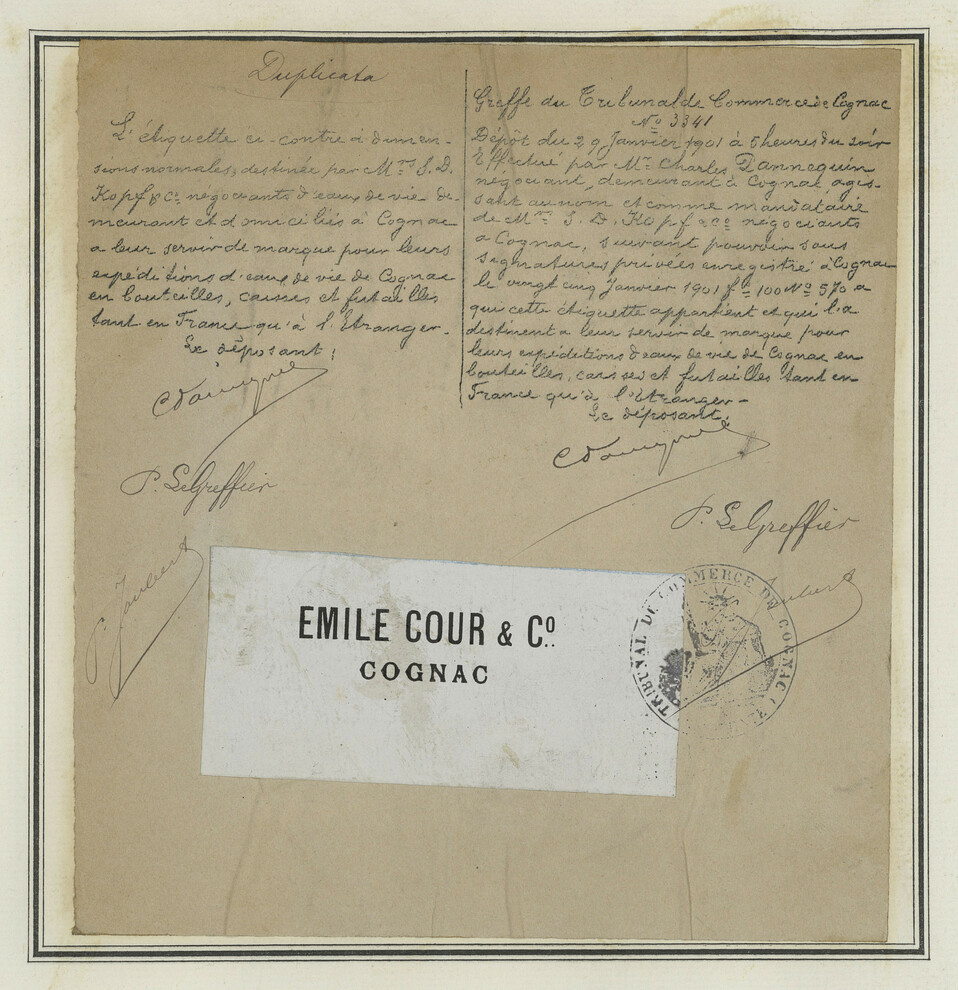 Duplicata
L'étiquette ci-contre à dimen-
sions normales, destinée par Mrs S. D.
Kopf & Co négociants d'eaux de vie de-
meurant et domiciliés à Cognac
a leur servir de marque pour leurs
expéditions d'eaux de vie de Cognac
en bouteilles, caisses et futailles
tant en France qu'à l'Etranger.
Le déposant,
P. Le Greffier
P. Joubert
Greffe du Tribunal de Commerce de Cognac
No 3341
Dépôt du 29 Janvier 1901 à 5 heures du soir
Effectué par Mr Charles Dannequin
négociant, demeurant à Cognac, agis-
sant au nom et comme mandataire
de Mrs S. D. Kopf & Co négociants
a Cognac, suivant pouvoir sous
signatures privées enregistré à Cognac
le vingt cinq Janvier 1901 fo 100 No 570 a
qui cette étiquette appartient et qui l'a
destinent a leur servir de marque pour
leurs expéditions d'eaux de vie de Cognac en
bouteilles, caisses et futailles tant en
France qu'à l'Etranger-
Le déposant,
P. Le Greffier
Joubert
EMILE COUR & Co.
COGNAC
TRIBUNAL DE COMMERCE DE COGNAC